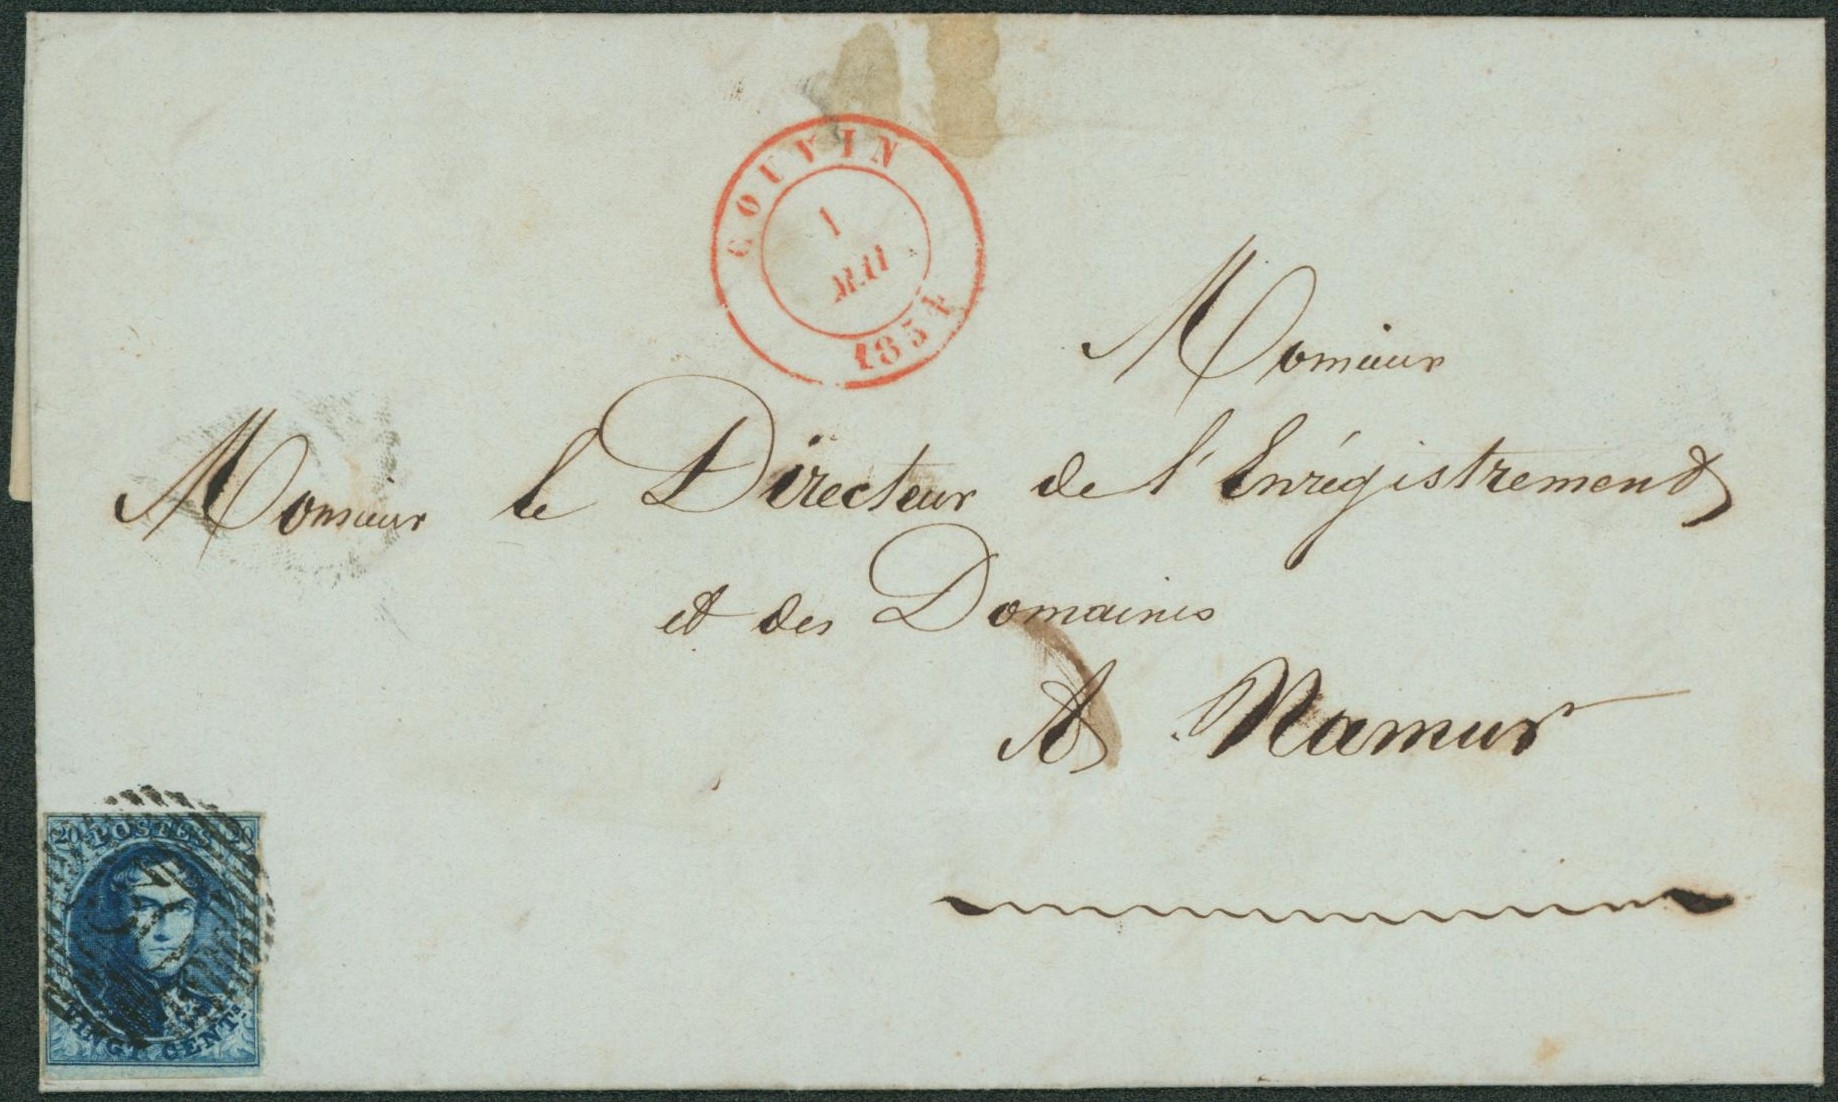 COUVIN
1
MAI
1854
Monsieur
Monsieur le Directeur de l'Enrégistrement
et des Domaines
A Namur
20 POSTES 20
VINGT CENTS.